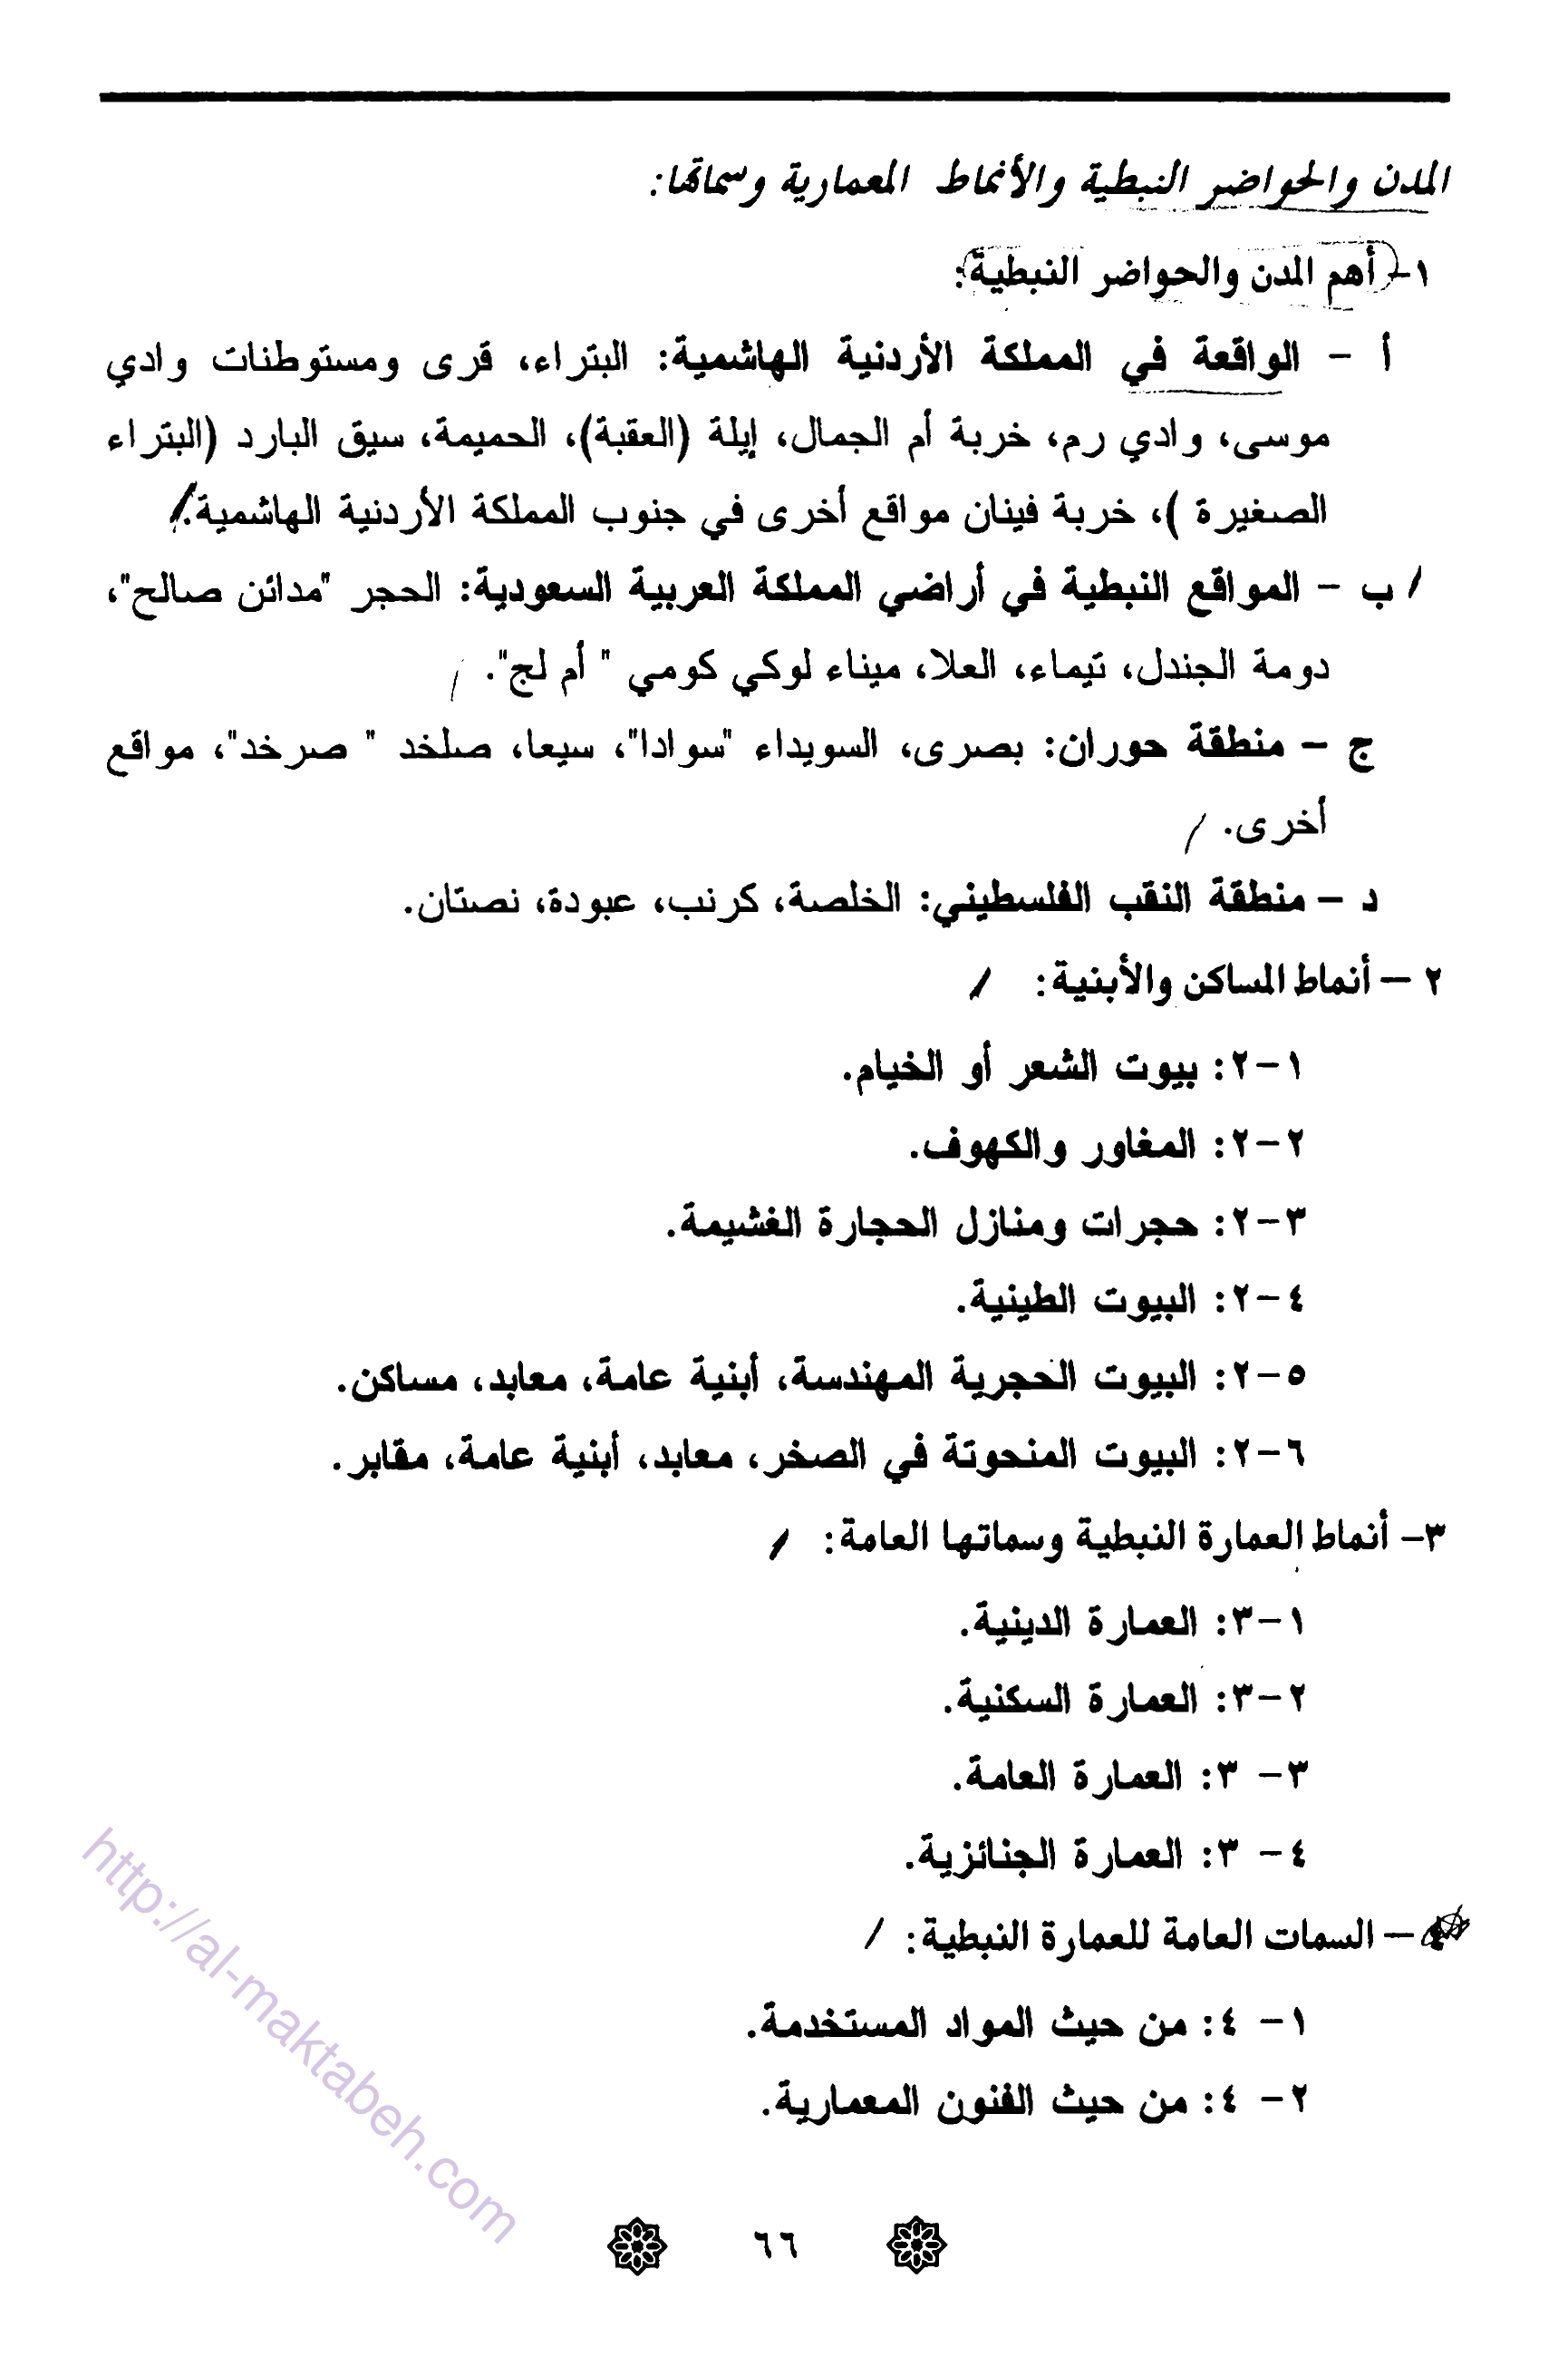 المدن والحواضر النبطية والأنماط المعمارية وسماتها:
١- أهم المدن والحواضر النبطية:
أ - الواقعة في المملكة الأردنية الهاشمية: البتراء، قرى ومستوطنات وادي
موسى، وادي رم، خربة أم الجمال، إيلة (العقبة)، الحميمة، سيق البارد (البتراء
الصغيرة )، خربة فينان مواقع أخرى في جنوب المملكة الأردنية الهاشمية.
ب - المواقع النبطية في أراضي المملكة العربية السعودية: الحجر "مدائن صالح"،
دومة الجندل، تيماء، العلا، ميناء لوكي كومي " أم لج".
ج - منطقة حوران: بصرى، السويداء "سوادا"، سيعا، صلخد " صرخد"، مواقع
أخرى.
د - منطقة النقب الفلسطيني: الخلصة، كرنب، عبودة، نصتان.
٢ - أنماط المساكن والأبنية:
١-٢: بيوت الشعر أو الخيام.
٢-٢: المغاور والكهوف.
٣-٢: حجرات ومنازل الحجارة الغشيمة.
٤-٢: البيوت الطينية.
٥-٢: البيوت الحجرية المهندسة، أبنية عامة، معابد، مساكن.
٦-٢: البيوت المنحوتة في الصخر، معابد، أبنية عامة، مقابر.
٣- أنماط العمارة النبطية وسماتها العامة:
١-٣: العمارة الدينية.
٢-٣: العمارة السكنية.
٣- ٣: العمارة العامة.
٤- ٣: العمارة الجنائزية.
٤ - السمات العامة للعمارة النبطية:
١- ٤: من حيث المواد المستخدمة.
٢- ٤: من حيث الفنون المعمارية.
http://al-maktabeh.com
٦٦